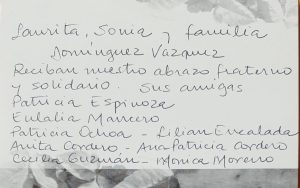 Laurita, Sonia y familia
Domínguez Vázquez
Reciban nuestro abrazo fraterno
y solidario. Sus amigas
Patricia Espinoza
Eulalia Mancero
Patricia Ochoa - Lilian Encalada
Anita Cordero - Ana Patricia Cordero
Cecilia Guzmán - Monica Moreno